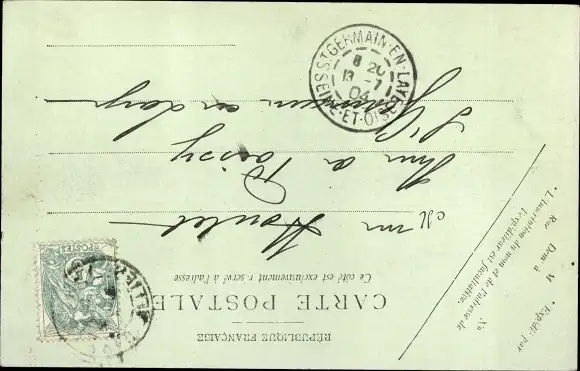 RÉPUBLIQUE FRANÇAISE
CARTE POSTALE
Ce côté est exclusivement réservé à l'adresse
M
Rue de Poissy
St Germain en Laye
ST GERMAIN-EN-LAYE
8 20
13 -7
04
SEINE-ET-OISE
POSTES
* Expédié par
M
Dem à
Rue
No
* L'inscription du nom et de l'adresse de
l'expéditeur est facultative.